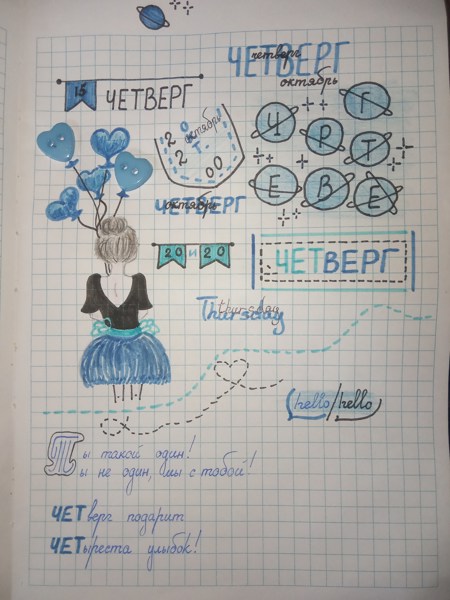 ЧЕТВЕРГ
четверг
октябрь
15 ЧЕТВЕРГ
октябрь
Г
Ч Р Т
Е В Е
ЧЕТВЕРГ
октябрь
20 и 20
ЧЕТВЕРГ
Thursday
thursday
hello/hello
Ты такой один!
ы не один, мы с тобой!
ЧЕТверг подарит
ЧЕТыреста улыбок!